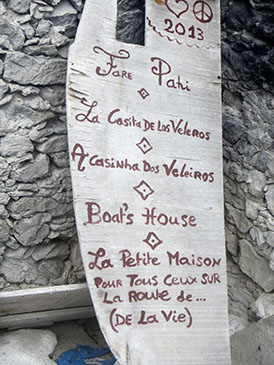 2013
Fare Pahi
La Casita De Los Veleros
A Casinha Dos Veleiros
Boat's House
La Petite Maison
Pour Tous Ceux Sur
La Route de...
(De La Vie)